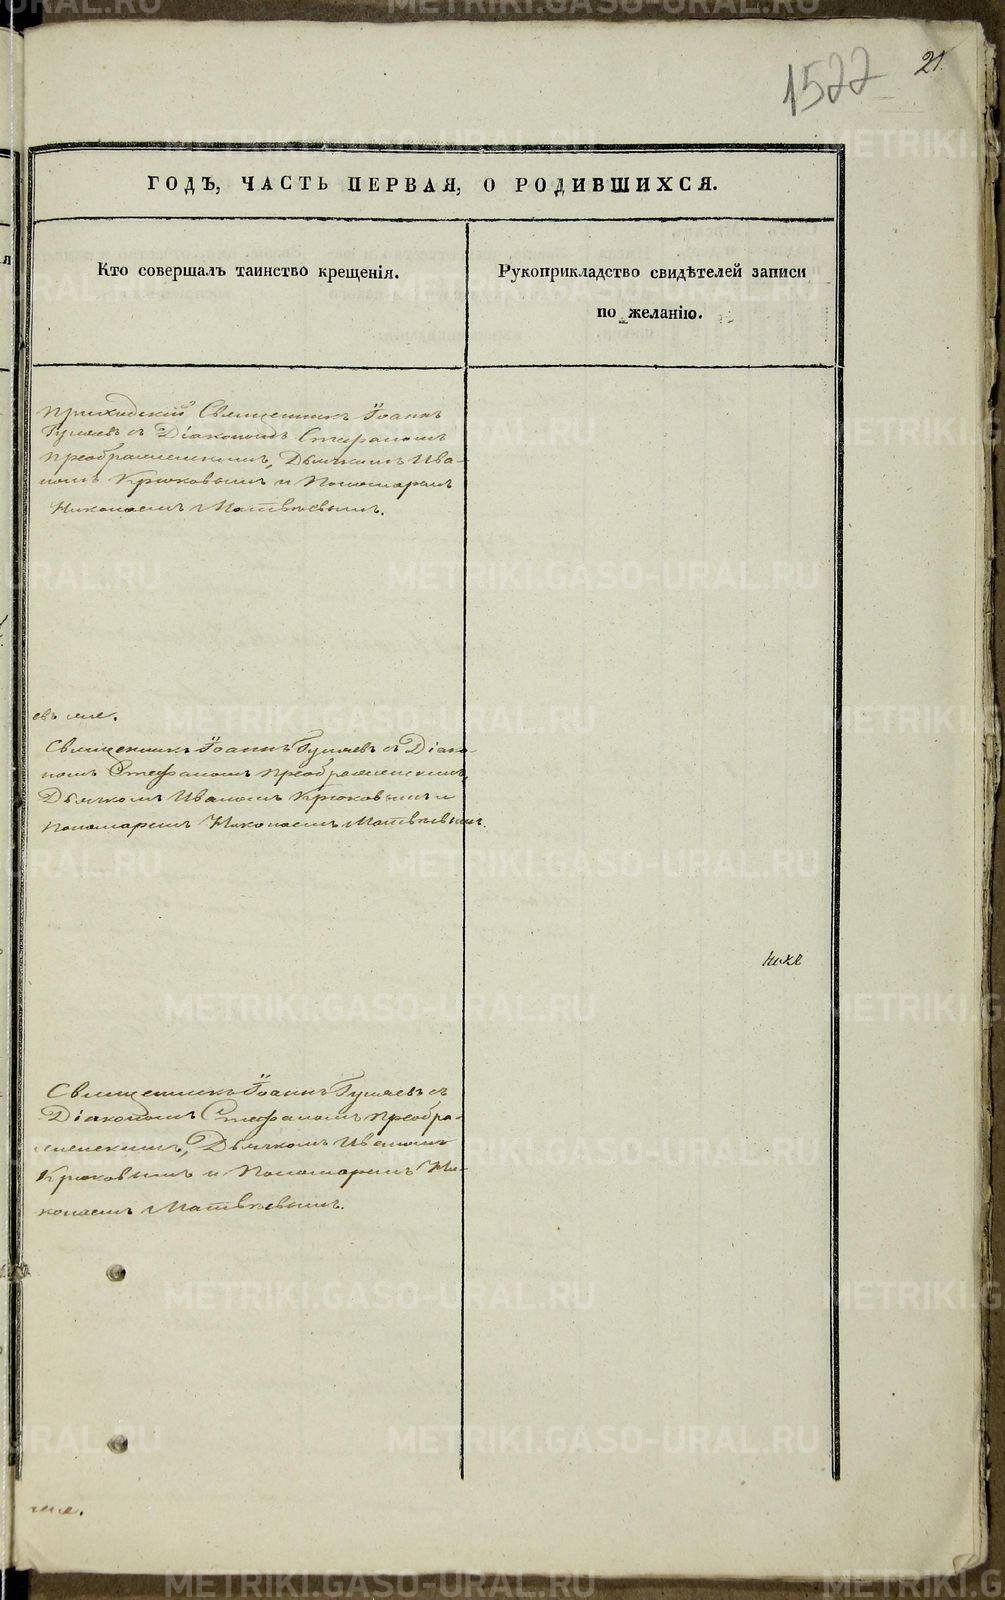 1522
21.
ГОДЪ, ЧАСТЬ ПЕРВАЯ, О РОДИВШИХСЯ.
Кто совершалъ таинство крещенія.
Рукоприкладство свидѣтелей записи
по желанію.
Приходскій Священникъ Іоаннъ
Гуляевъ съ Діакономъ Стефаномъ
Преображенскимъ, Дьячкомъ Ива-
номъ Крюковымъ и Пономаремъ
Николаемъ Матвѣевымъ.
Священникъ Іоаннъ Гуляевъ съ Діако-
номъ Стефаномъ Преображенскимъ,
Дьячкомъ Иваномъ Крюковымъ и
Пономаремъ Николаемъ Матвѣевымъ.
Священникъ Іоаннъ Гуляевъ съ
Діакономъ Стефаномъ Преобра-
женскимъ, Дьячкомъ Иваномъ
Крюковымъ и Пономаремъ Ни-
колаемъ Матвѣевымъ.
METRIKI.GASO-URAL.RU